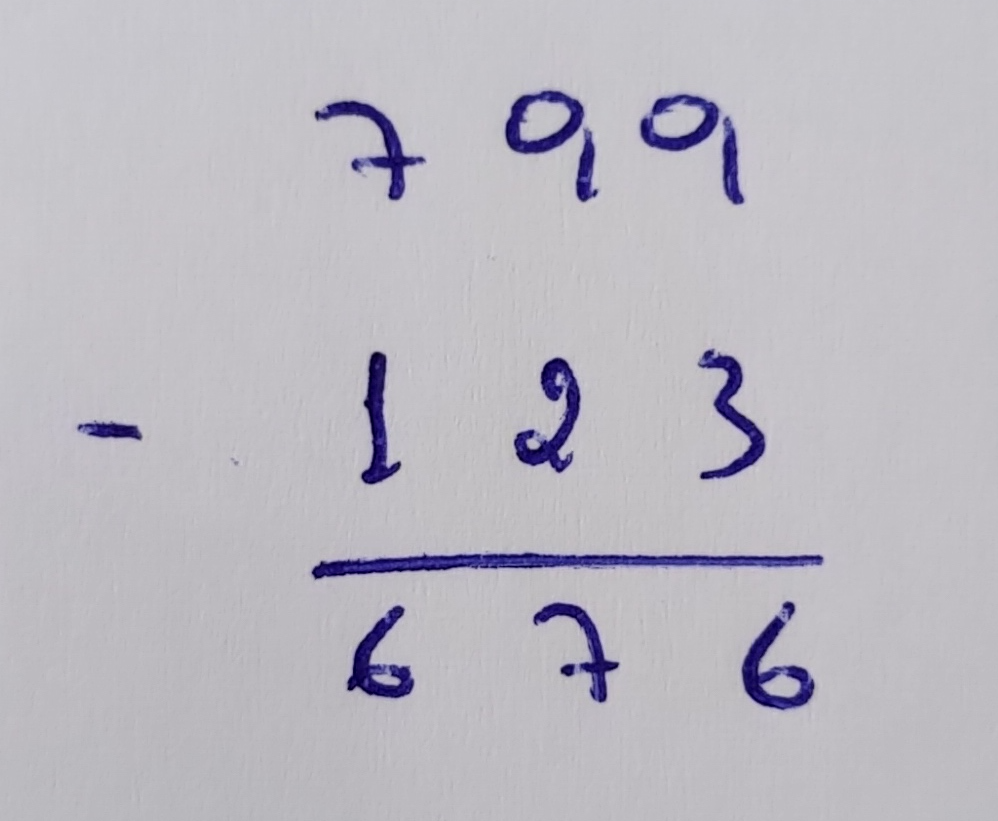 7 9 9
- 1 2 3
6 7 6